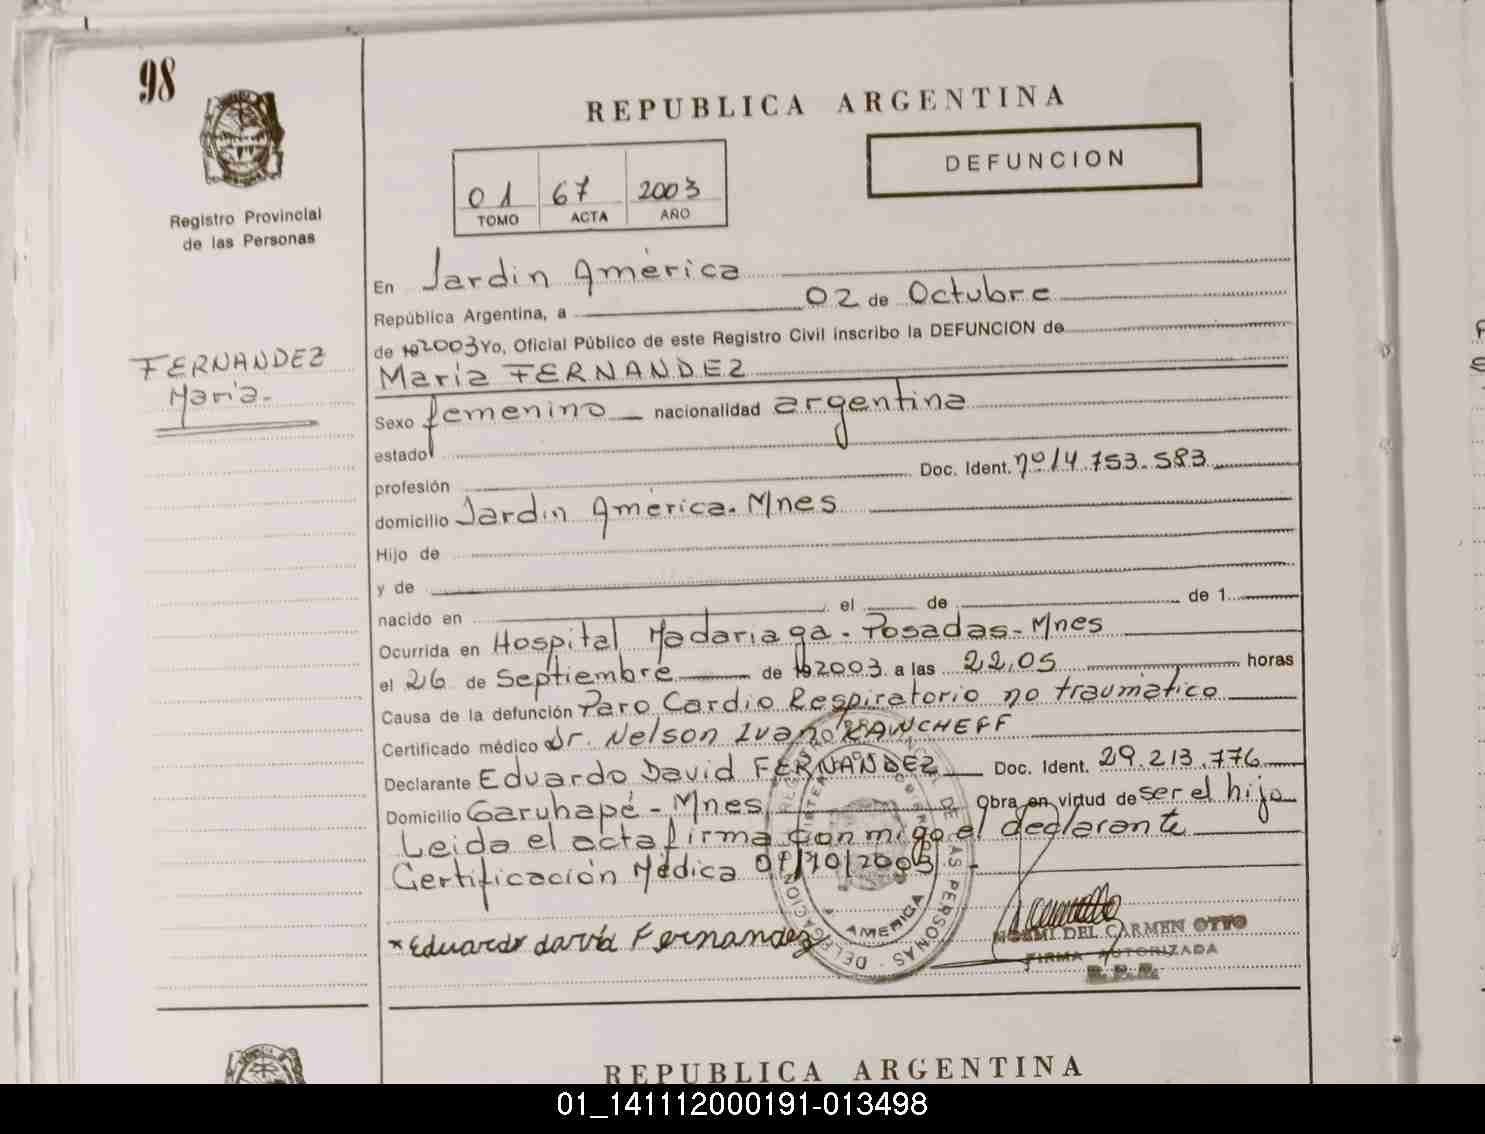 98
REPUBLICA ARGENTINA
DEFUNCION
01 67 2003
TOMO ACTA AÑO
Registro Provincial
de las Personas
FERNANDEZ
María.-
En Jardin América
República Argentina, a 02 de Octubre
de 192003 Yo, Oficial Público de este Registro Civil inscribo la DEFUNCION de
María FERNANDEZ
Sexo femenino nacionalidad argentina
estado
profesión Doc. Ident. nº 14.753.583
domicilio Jardin América. Mnes
Hijo de
y de
nacido en el de de 1
Ocurrida en Hospital Madariaga - Posadas - Mnes
el 26 de Septiembre de 192003 a las 22,05 horas
Causa de la defunción Paro Cardio Respiratorio no traumático
Certificado médico Dr. Nelson Ivano
Declarante Eduardo David FERNANDEZ Doc. Ident. 29.213.776
Domicilio Garuhapé - Mnes Obra en virtud de ser el hijo
Leida el acta firma conmigo el declarante
Certificación Médica 01/10/2003 -
*Eduardo david Fernandez
DELEGACION
AMERICA
DE LAS PERSONAS
NOEMI DEL CARMEN OTTO
FIRMA AUTORIZADA
REPUBLICA ARGENTINA
01_141112000191-013498